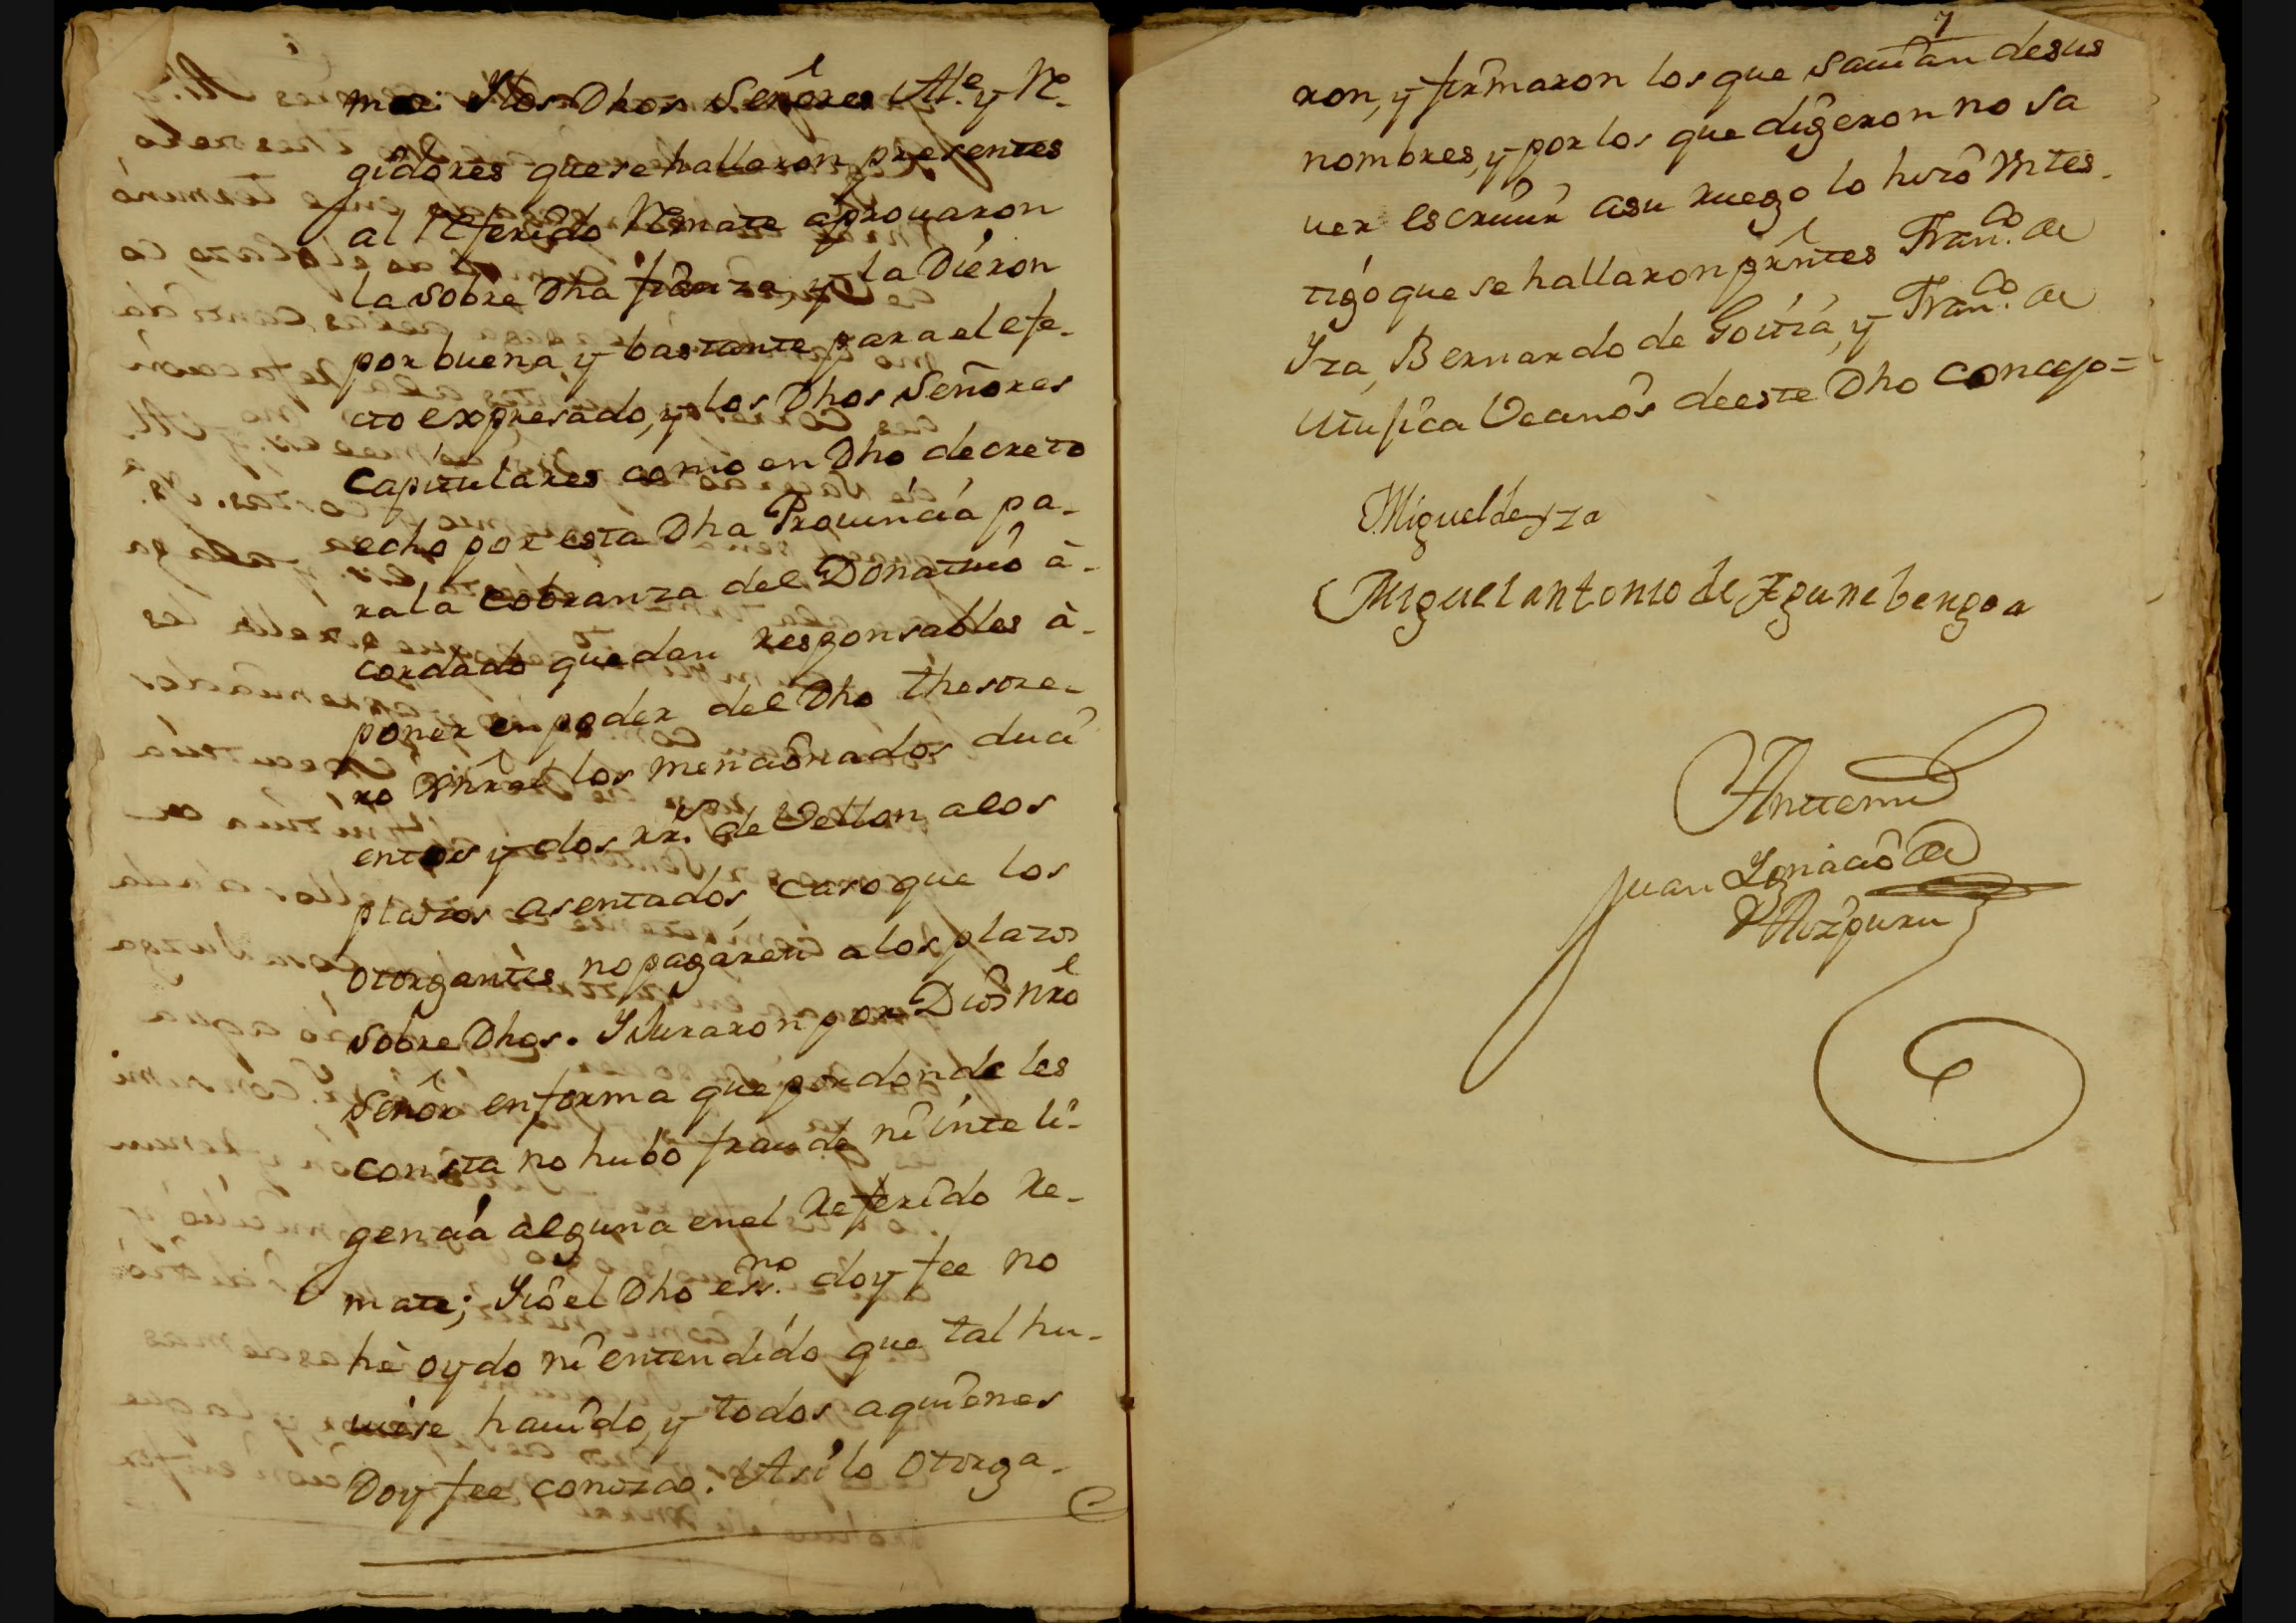 me: Ylos Dhos Señores Alᵉ y Rᵉ-
gidores que se hallaron presentes
al Referido Remate aprouaron
la sobre Dha fianza, y la Dieron
por buena y bastante para el efe-
cto expresado, y los Dhos Señores
Capitulares como en Dho decreto
echo por esta Dha Prouincia pa-
rala cobranza del Donatiuo à-
cordado quedan responsables à-
poner en poder del Dho thesore-
ro los mencionados duci
entos y dos rrˢ. de Vellon alos
plazos asentados caso que los
otorgantes no pagaren a los plazos
sobre Dhos. Y Juraron por Dios nrō
Señor en forma que por donde les
consta no hubo fraude ni inteli-
gencia alguna enel Referido Re-
mate; Yio el Dho essⁿᵒ. doy fee no
hè oydo ni entendido que tal hu-
uiese hauido, y todos aquienes
Doy fee conozco. Asi lo otorga-
7
ron, y firmaron los que sauian desus
nombres, y por los que digeron no sa
uer escriuir asu ruego lo hizo vn tes-
tigo que se hallaron prntes Franᶜᵒ. de
Yza, Bernardo de Goitia, y Franᶜᵒ. de
Vecinos deeste Dho concejo=
Miguel de yza
Miguel antonio de Egurebengoa
Anttemi
Juan Ignacio de
Aizpuru